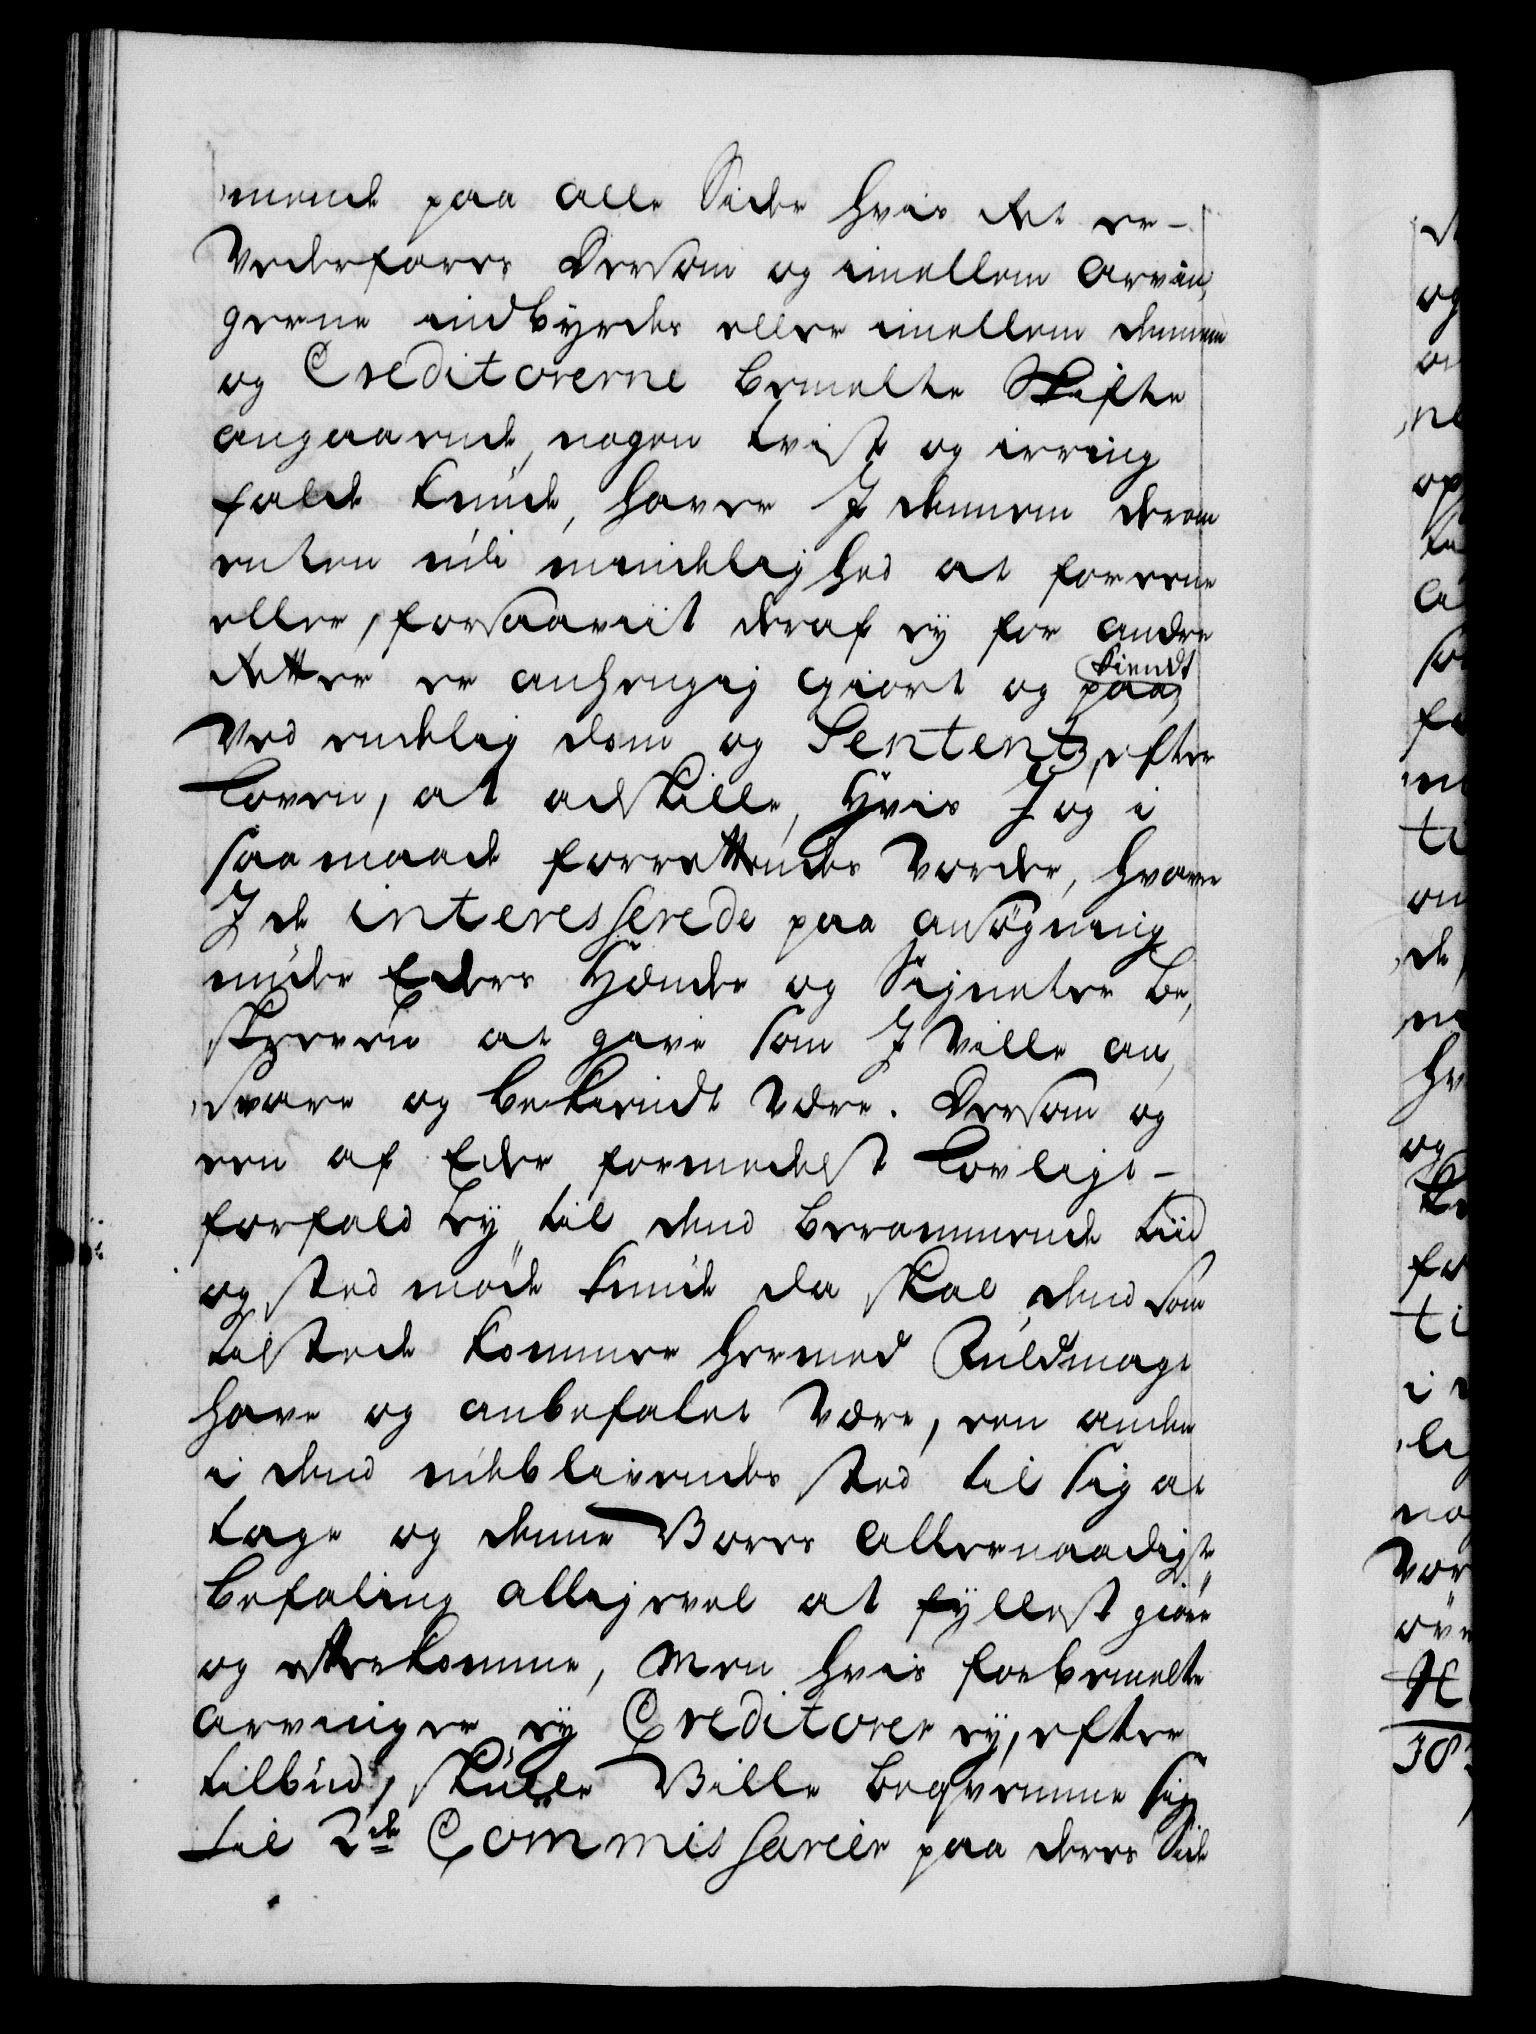 mende paa alle Sider hvis Ret er-
Vederfares Dersom og imellem arvin,
gerne indbyrdes eller imellem dennem
og Creditorerne bemelte Skifte
angaaende, nogen tvist og irring
fald kunde, haver I dennem derom
enten udi mindelighed at foreene
eller, forsaavit deraf ej for andre
Retter er anhengig giort og paa
kiendt
Ved endelig dom og Sententz, efter
Loven, at adskille, Hvis I og i
saa maade forrettendes Vorder, haver
I de interesserede paa ansøgning
under Eders Hænder og Signeter be,
skreven at give som I Ville an,
svare og bekiendt Være. Dersom og
een af Eder formedelst Lovligt-
forfald ej til dend berammende tiid
og sted møde kunde da skal dend som
tilstede kommer hermed Fuldmagt
have og anbefalet Være, een anden
i dend udeblivendes sted til sig at
tage og denne Vores allernaadigste
befaling alligevel at fyllest giøre
og efterkomme, Men hvis forbemelte
arvinger ej Creditorer ej, efter
tilbud, skulle Ville beqvemme sig
til 2de Commissarier paa deres Side